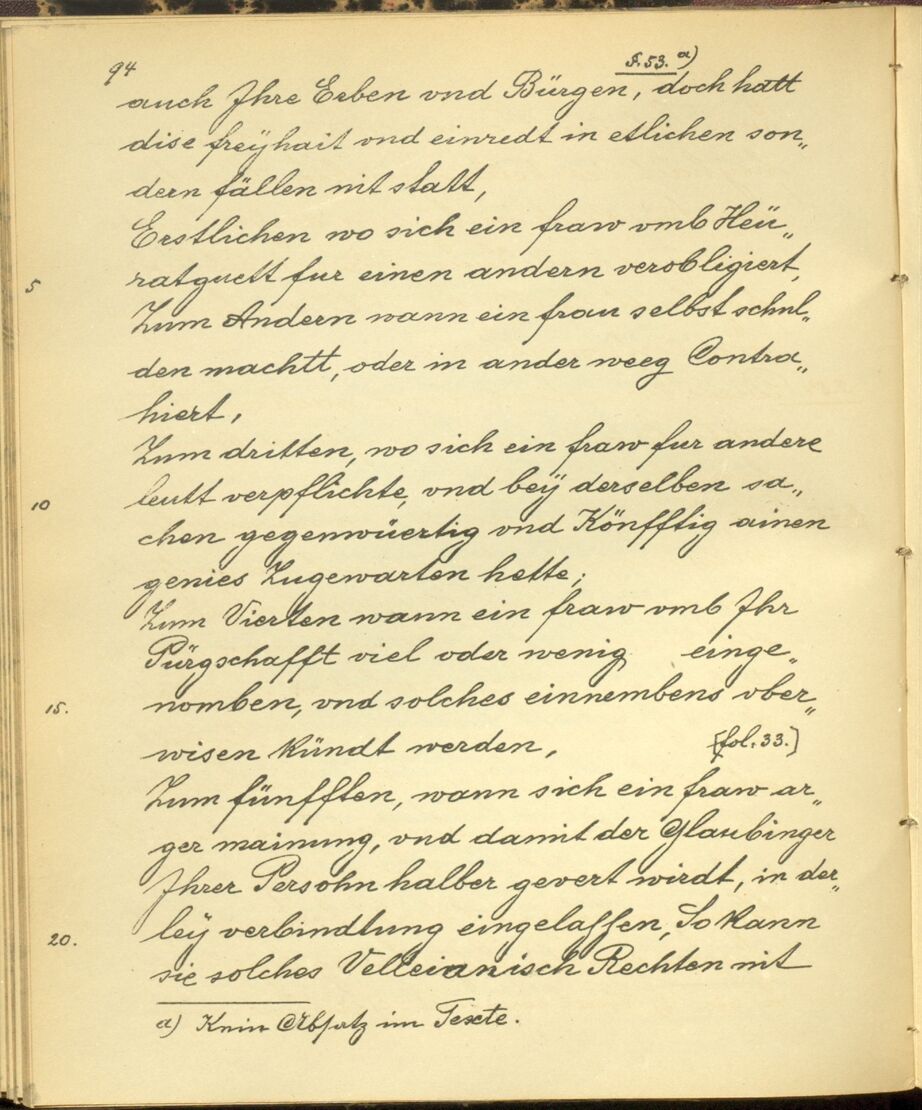 94
§. 53. a)
auch Ihre Erben vnd Bürgen, doch hatt
dise freÿhait vnd einredt in etlichen son„
dern fällen nit statt,
Erstlichen wo sich ein fraw vmb Heü„
5 ratguett fur einen andern verobligiert,
Zum Andern wann ein frau selbst schul„
den machtt, oder in ander weeg Contra„
hiert,
Zum dritten, wo sich ein fraw fur andere
10 leutt verpflichte, vnd beÿ derselben sa„
chen gegenwüertig vnd Könfftig ainen
genies Zugewarten hette;
Zum Vierten wann ein fraw vmb Ihr
Pürgschafft viel oder wenig einge„
15. nomben, vnd solches einnembens vber„
wisen kündt werden, [fol. 33.]
Zum fünfften, wann sich ein fraw ar„
ger mainung, vnd damit der Glaubinger
Ihrer Persohn halber gevert wirdt, in der„
20. leÿ verbindtung eingelassen, So kann
sie solches Velleianisch Rechten nit
a) Kein Absatz im Texte.